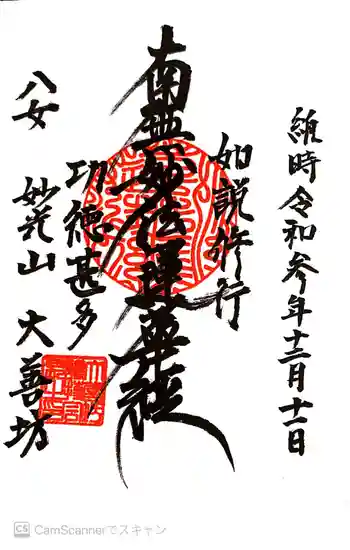 維時令和参年十二月十一日
如説修行
南無妙法蓮華経
功徳甚多
八女
妙光山 大善坊
CS CamScannerでスキャン